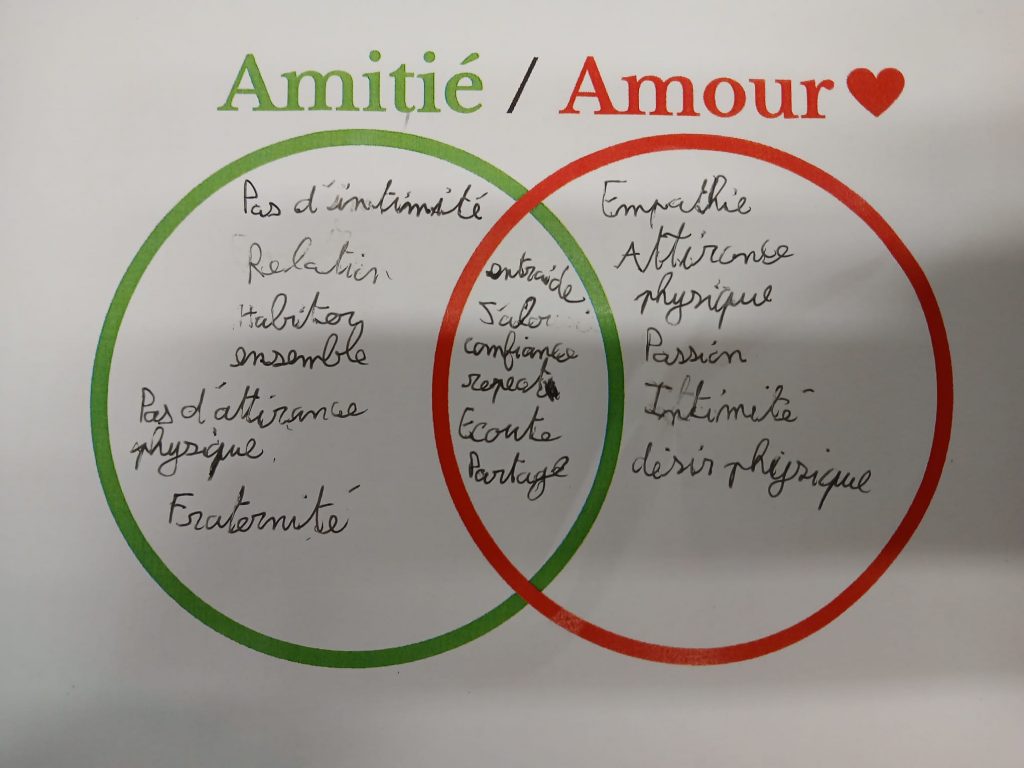 Amitié / Amour
Pas d'intimité
Relation
Habiter
ensemble
Pas d'attirance
physique.
Fraternité
entraide
confiance
repect
Ecoute
Partage
Empathie
Attirance
physique
Passion
Intimité
désir physique